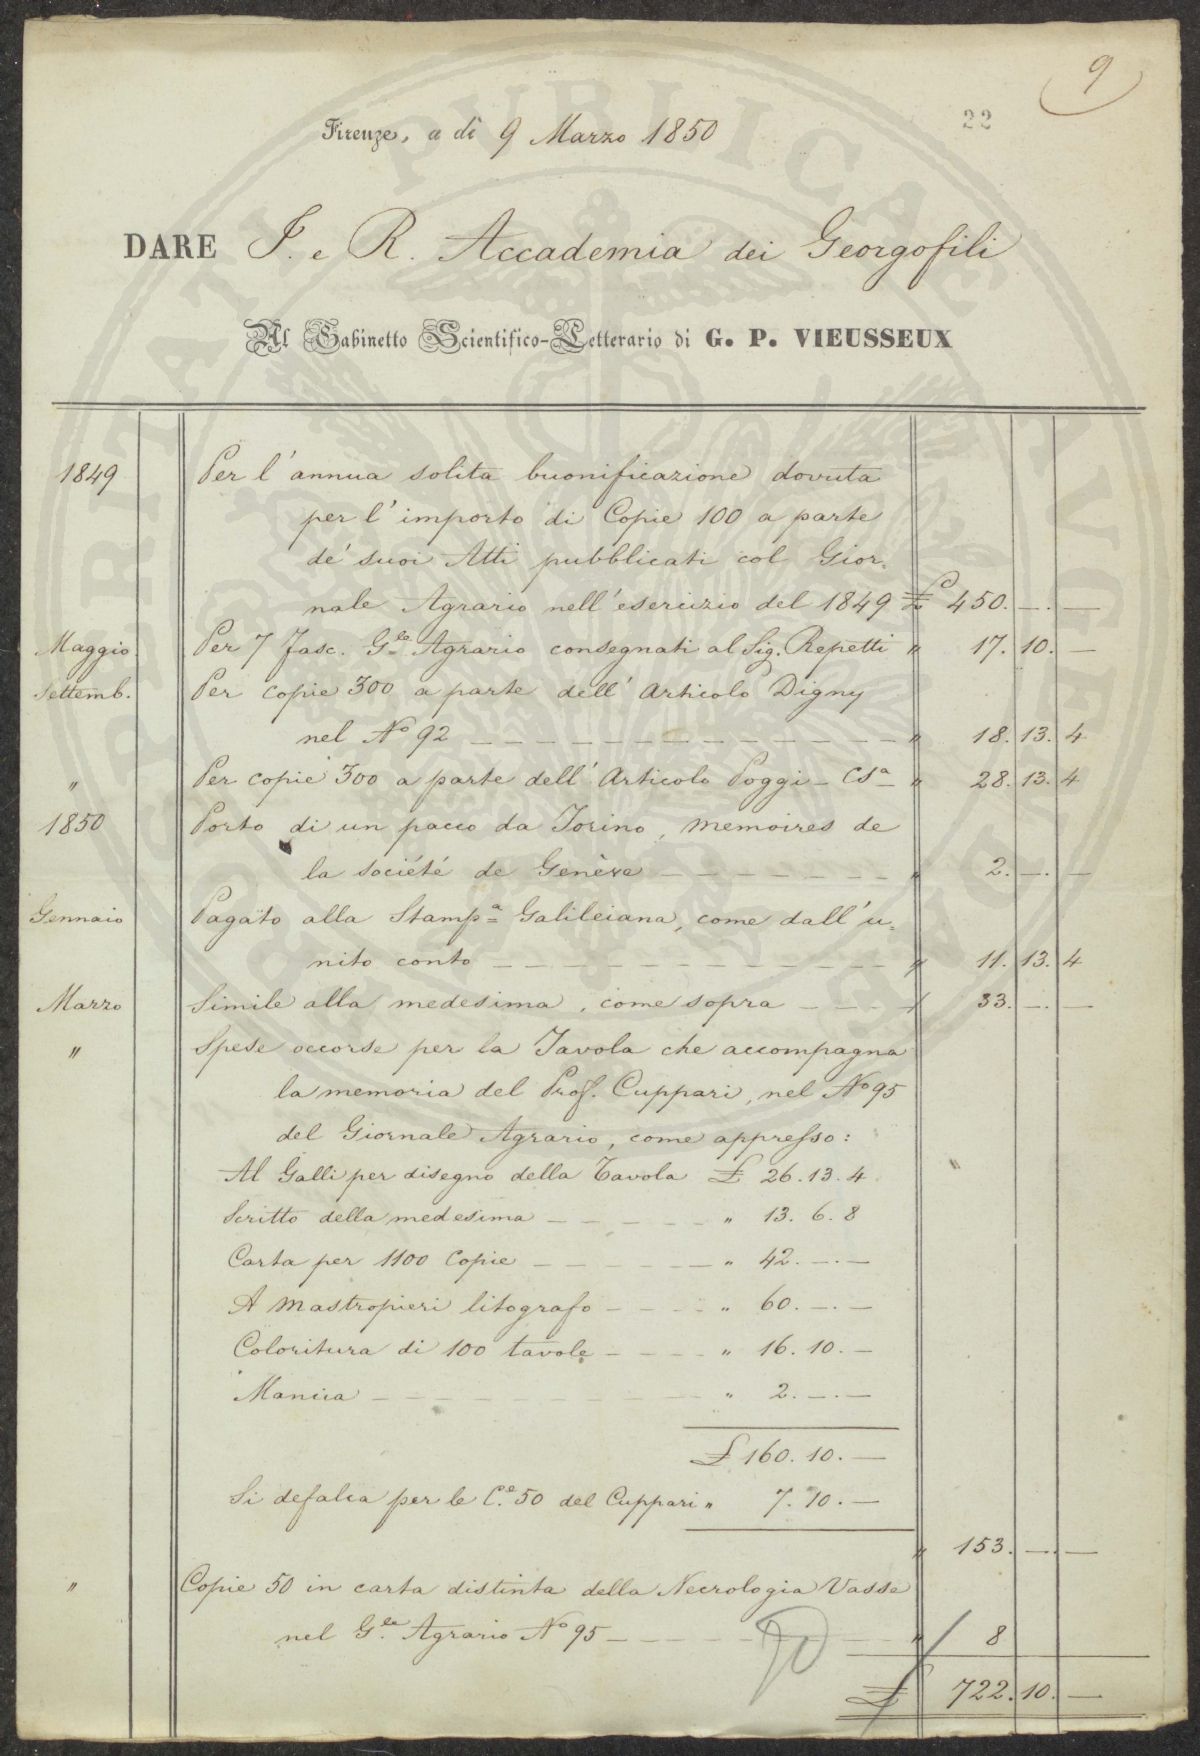 9
22
Firenze, a dì 9 Marzo 1850
DARE I. e R. Accademia dei Georgofili
Al Gabinetto Scientifico-Letterario di G. P. VIEUSSEUX
1849 Per l'annua solita buonificazione dovuta
per l'importo di Copie 100 a parte
de' suoi Atti pubblicati col Gior-
nale Agrario nell'esercizio del 1849 £ 450. —. —
Maggio Per 7 Fasc. G.le Agrario consegnati al Sig. Repetti " 17. 10. —
Settemb. Per copie 300 a parte dell'Articolo Digny
nel No 92 — — — — " 18. 13. 4
" Per copie 300 a parte dell'Articolo Poggi — Csa " 28. 13. 4
1850 Porto di un pacco da Torino, memoires de
la société de Genève — — — — " 2. —. —
Gennaio Pagato alla Stampa Galileiana, come dall'u-
nito conto — — — — " 11. 13. 4
Marzo Simile alla medesima, come sopra — — — " 33. —. —
" Spese occorse per la Tavola che accompagna
la memoria del Prof. Cuppari, nel No 95
del Giornale Agrario, come appresso:
Al Galli per disegno della Tavola £ 26. 13. 4
Scritto della medesima — — — — " 13. 6. 8
Carta per 1100 Copie — — — — " 42. —. —
A Mastropieri litografo — — — — " 60. —. —
Coloritura di 100 tavole — — — — " 16. 10. —
Mancia — — — — " 2. —. —
£ 160. 10. —
Si defalca per le C.e 50 del Cuppari " 7. 10. —
" 153. —. —
" Copie 50 in carta distinta della Necrologia Vasse
nel G.le Agrario No 95 — — — — " 8
£ 722. 10. —